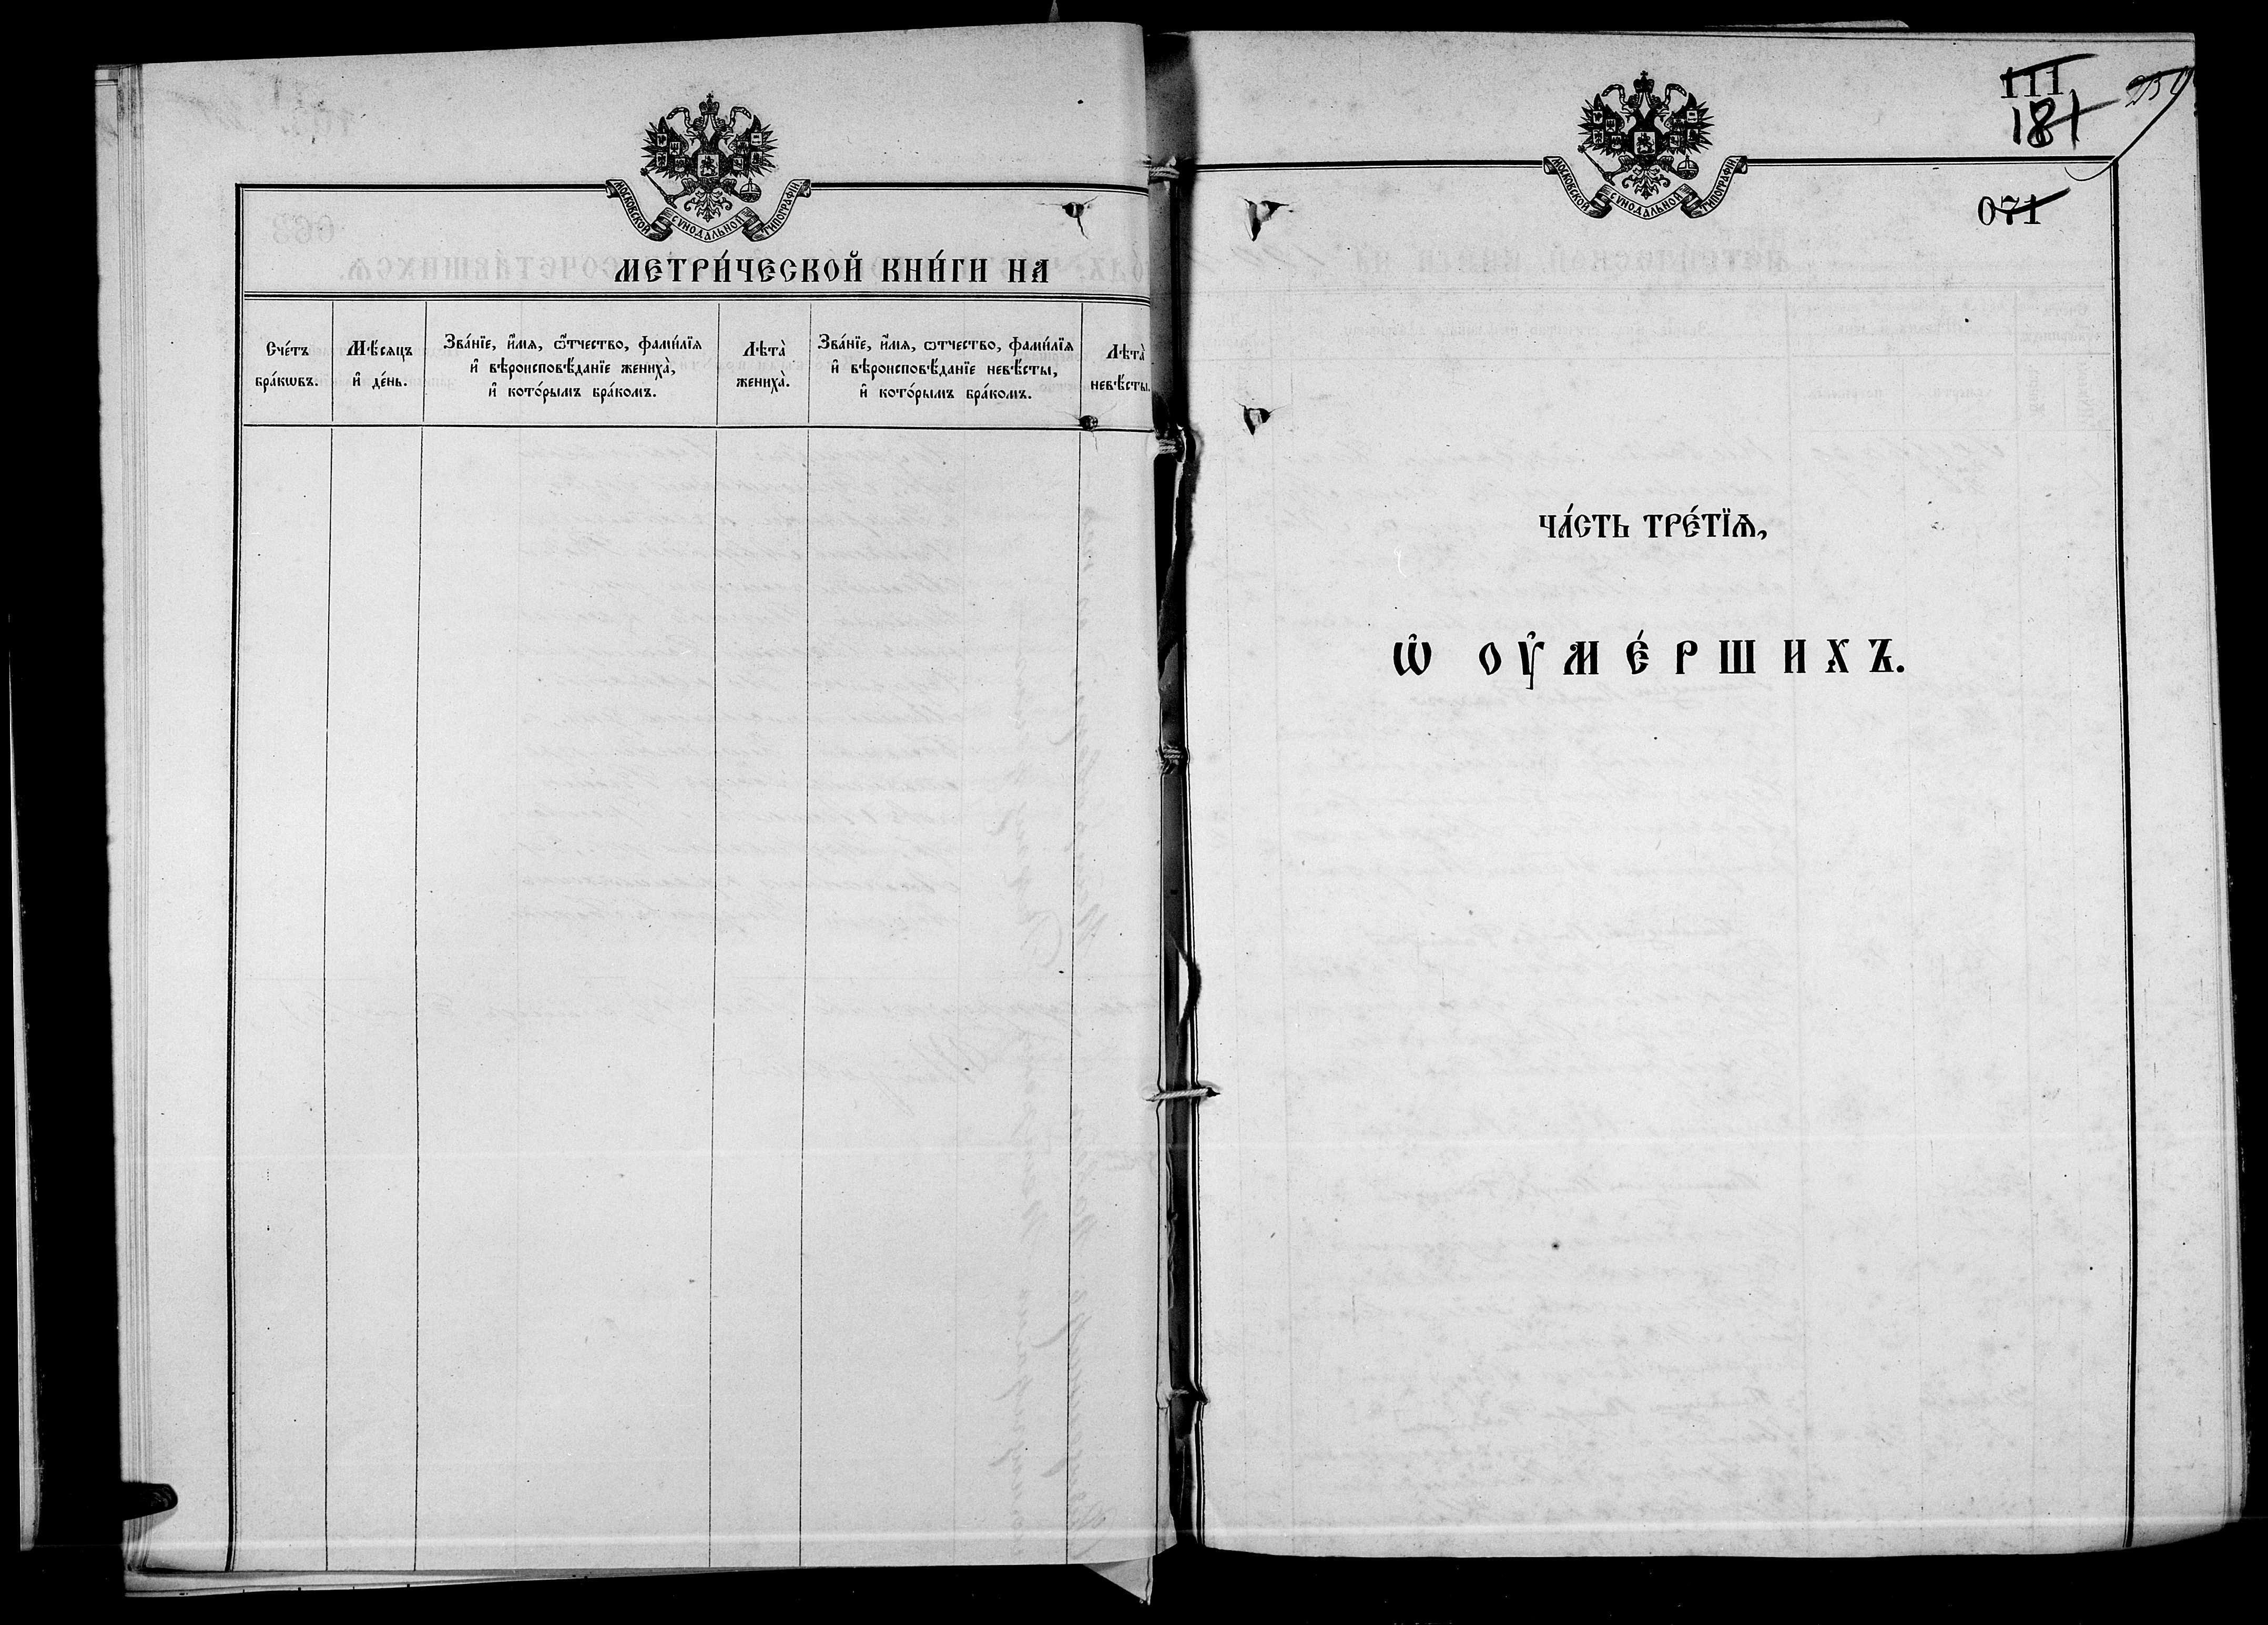 МОСКОВСКОЙ СѴНОДАЛЬНОЙ ТИПОГРАФІИ
МЕТРИ́ЧЕСКОЙ КНИ́ГИ НА
Сче́тъ бра́кѡвъ.
Мѣ́сяцъ и҆ де́нь.
Зва́нїе, и҆́мя, ѻ҆́тчество, фами́лїя
и҆ вѣроисповѣ́данїе жениха̀,
и҆ кото́рымъ бра́комъ.
Лѣта̀ жениха̀.
Зва́нїе, и҆́мя, ѻ҆́тчество, фами́лїя
и҆ вѣроисповѣ́данїе невѣ́сты,
и҆ кото́рымъ бра́комъ.
Лѣта̀ невѣ́сты.
111
181
259
МОСКОВСКОЙ СѴНОДАЛЬНОЙ ТИПОГРАФІИ
071
ЧА́СТЬ ТРЕ́ТЇѦ,
Ѡ҆ ОУ҆МЕ́РШИХЪ.